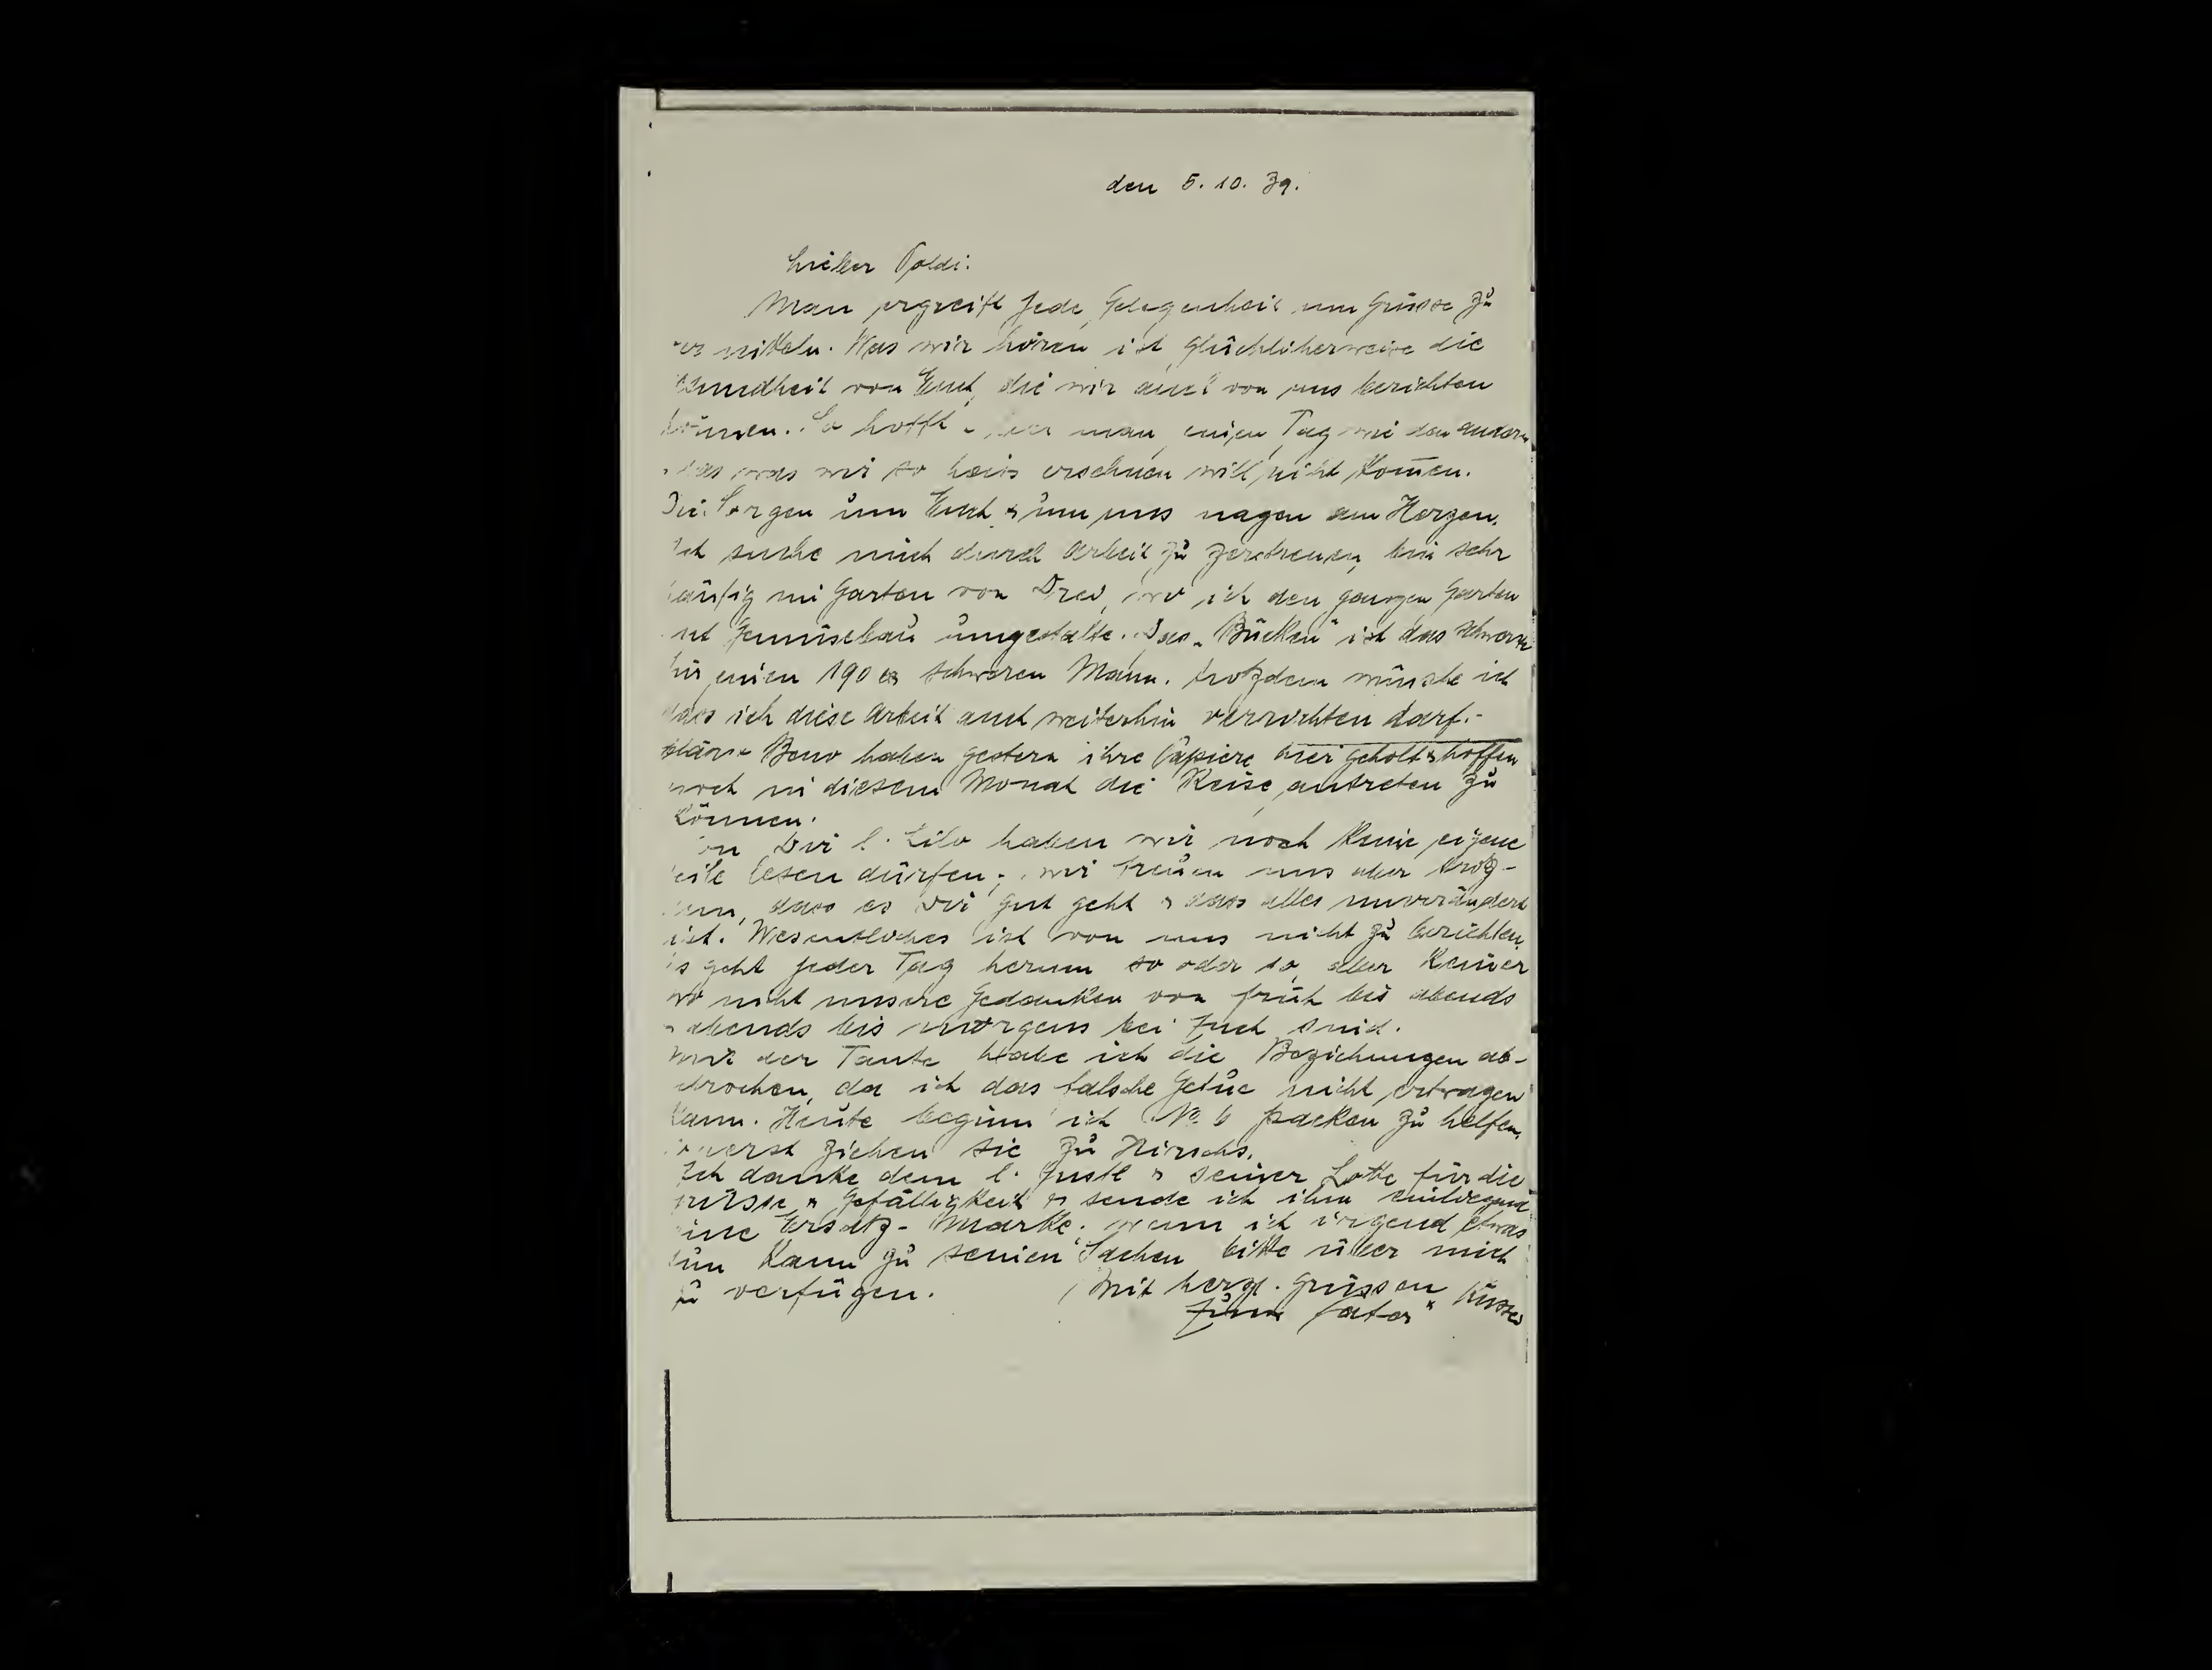 den 5. 10. 39.
Lieber Poldi.
Man ergreift jede Gelegenheit um Grüsse zu
mitteln. Was wir hören ist glücklicherweise die
sundheit von Euch, die wir auch von uns berichten
können. So hofft man einen Tag wie den andern
das was wir so heis ersehnen will nicht kom̄en.
Die Sorgen um Euch & um uns nagen am Herzen.
Ich suche mich durch Arbeit zu zerstreuen, bin sehr
häufig im Garten von wo ich den ganzen Garten
mit Gemüsebau umgestalte. Das "Bücken" ist das schwerste
für einen 190 er schweren Mann. trotzdem wünsche ich
dass ich diese Arbeit auch weiterhin verrichten darf.-
Beno haben gestern ihre Papiere hier geholt & hoffen
noch in diesem Monat die Reise antreten zu
können.
Von Dir l. Lilo haben wir noch keine eigene
Zeile lesen dürfen; wir freuen uns aber trotz-
dem, dass es Dir gut geht & dass alles unverändert
ist. Wesentliches ist von uns nicht zu berichten.
Es geht jeder Tag herum so oder so, aber keiner
wo nicht unsere Gedanken von früh bis abends
& abends bis morgens bei Euch sind.
Mit der Tante habe ich die Beziehungen ab-
brochen, da ich das falsche Getue nicht ertragen
kann. Heute beginn ich No. 6 packen zu helfen.
ziehen sie zu Hirschs.
Ich danke dem l. Justl & seiner Lotte für die
Grüsse & Gefälligkeit & sende ich ihm einliegend
eine Ersatz-Marke. wenn ich irgend etwas
tun kann zu seinen Sachen bitte über mich
zu verfügen. Mit herzl. Grüssen & Küssen
Euer Vater